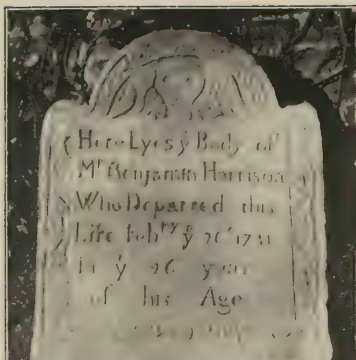 Here Lyes yͤ Body of
Mr Benjamin Harrison
Who Departed this
Life Febry yͤ
In yͤ 26 year
of his Age